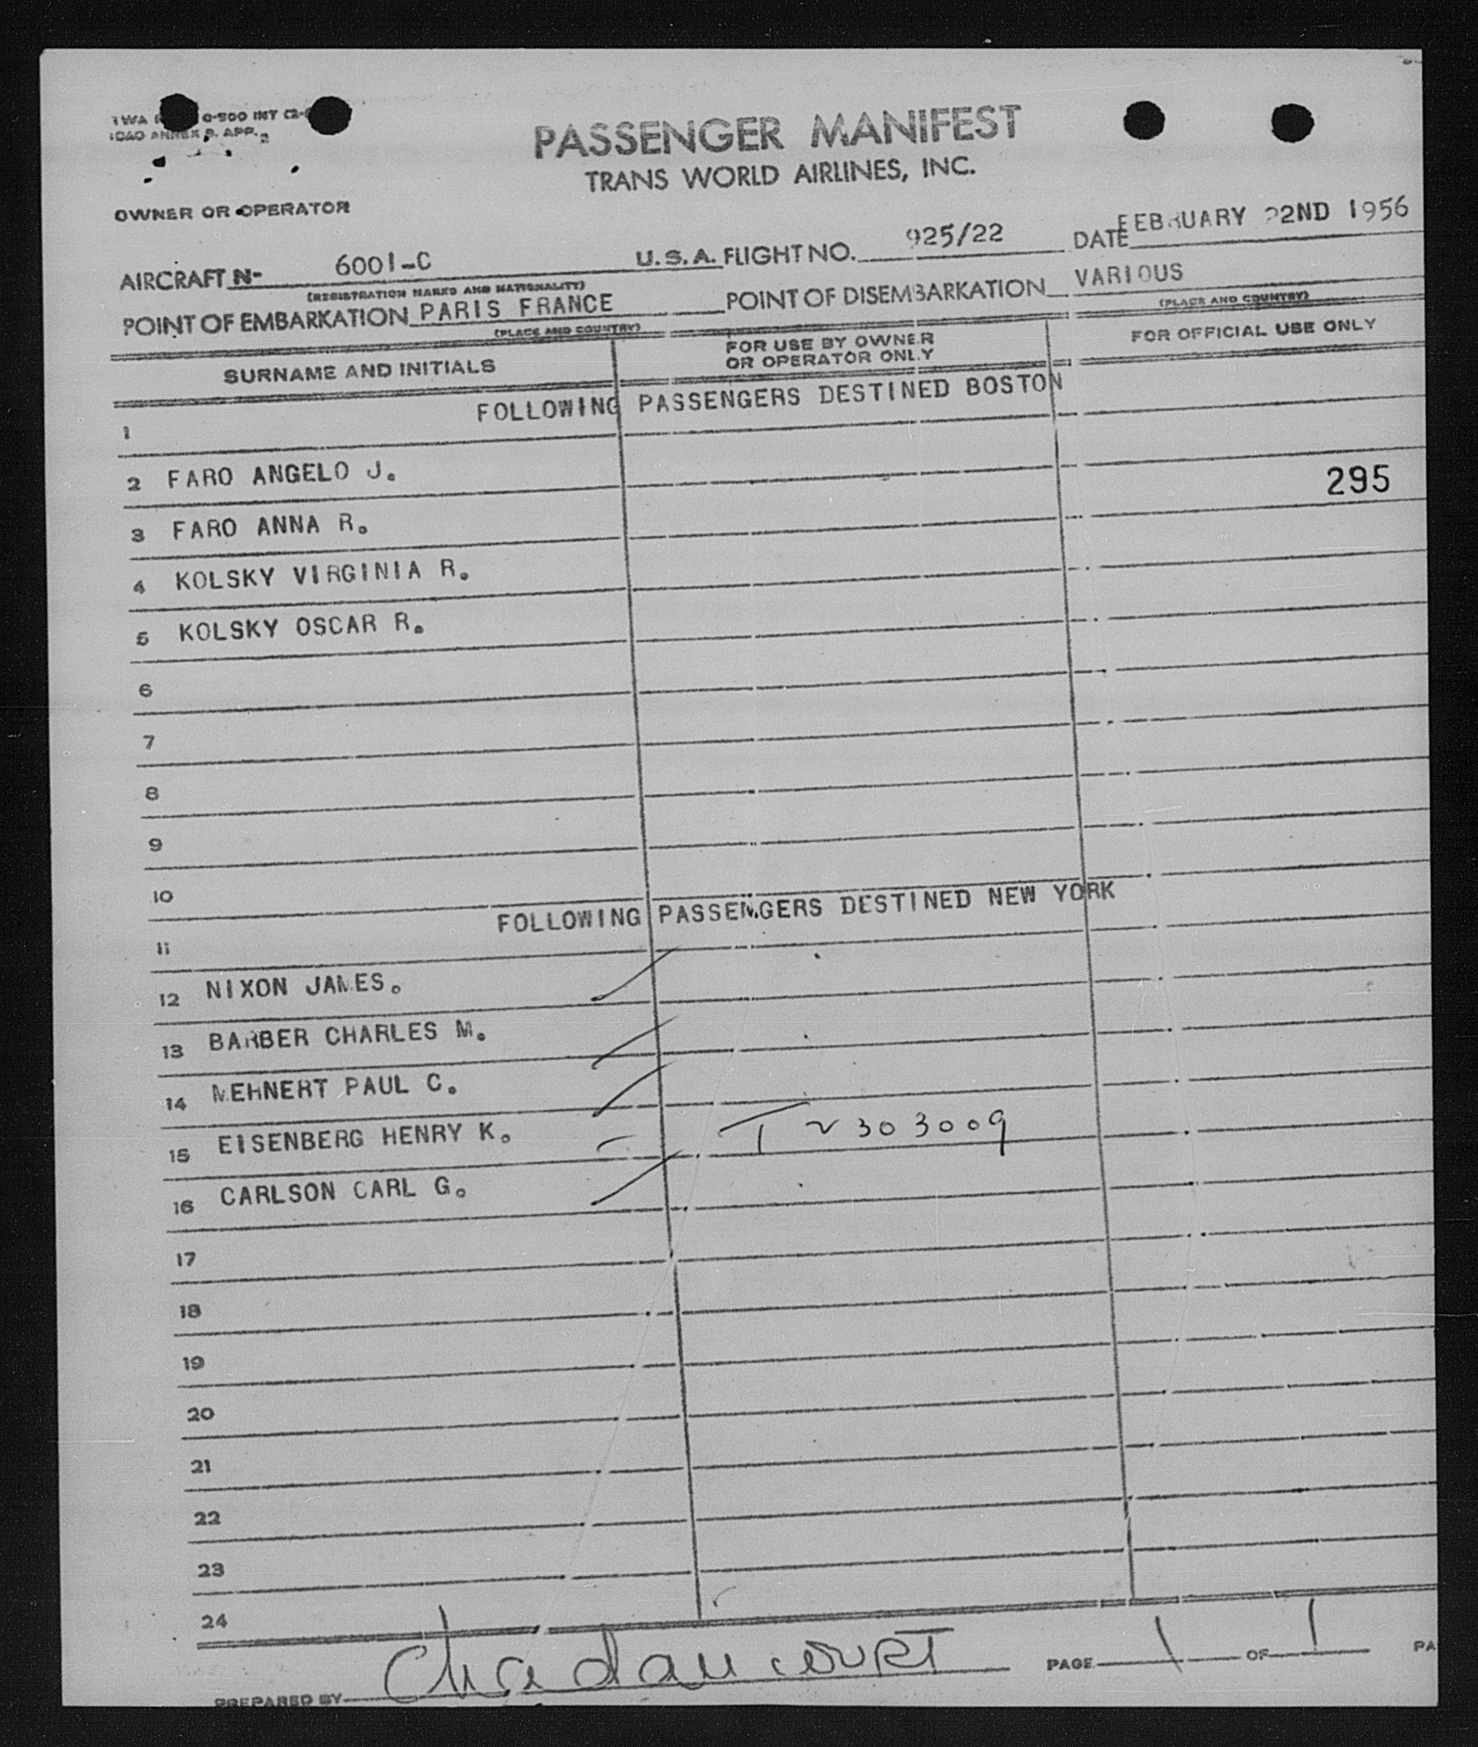 TWA 0-500 INT
ICAO ANNEX 9. APP. 2
PASSENGER MANIFEST
TRANS WORLD AIRLINES, INC.
OWNER OR OPERATOR
AIRCRAFT N- 6001-C U.S.A. FLIGHT NO. 925/22 DATE FEBRUARY 22ND 1956
(REGISTRATION MARKS AND NATIONALITY)
POINT OF EMBARKATION PARIS FRANCE POINT OF DISEMBARKATION VARIOUS
(PLACE AND COUNTRY) (PLACE AND COUNTRY)
SURNAME AND INITIALS FOR USE BY OWNER OR OPERATOR ONLY FOR OFFICIAL USE ONLY
1 FOLLOWING PASSENGERS DESTINED BOSTON
2 FARO ANGELO J.
295
3 FARO ANNA R.
4 KOLSKY VIRGINIA R.
5 KOLSKY OSCAR R.
6
7
8
9
10
11 FOLLOWING PASSENGERS DESTINED NEW YORK
12 NIXON JAMES.
13 BARBER CHARLES M.
14 MEHNERT PAUL C.
15 EISENBERG HENRY K. T 2303009
16 CARLSON CARL G.
17
18
19
20
21
22
23
24
PREPARED BY PAGE 1 OF 1 PA